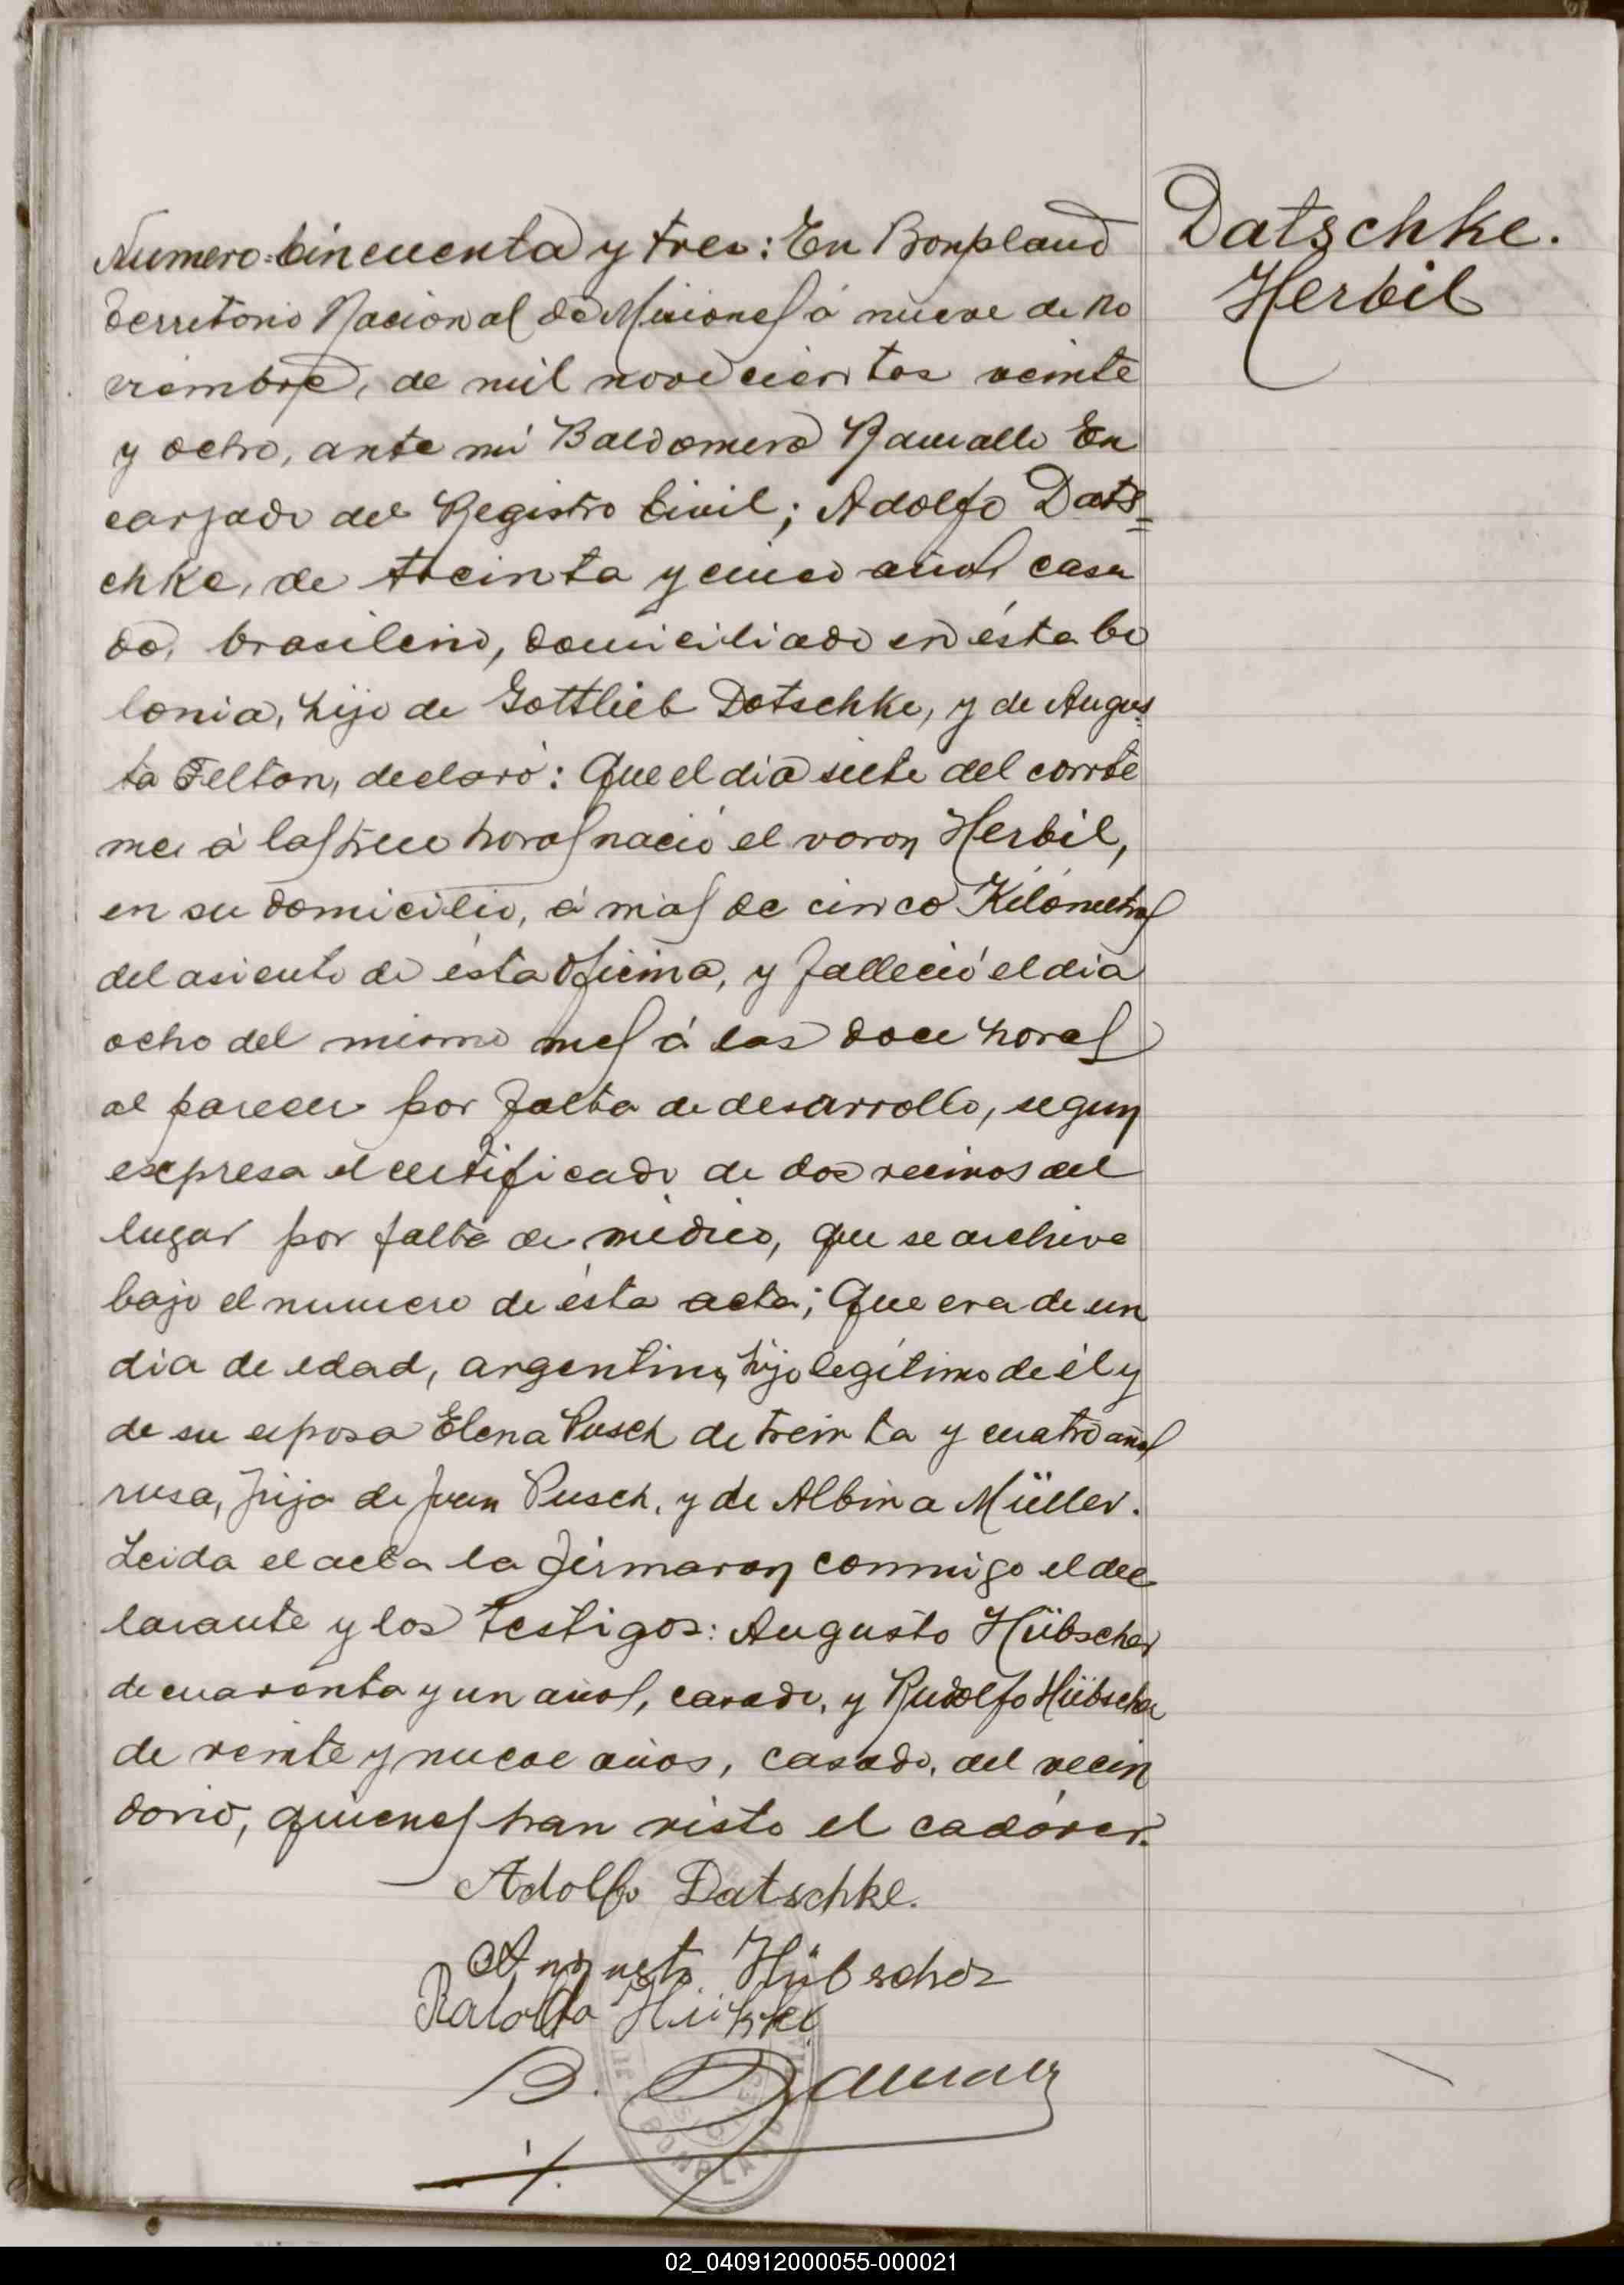 Datschke.
Herbil
Numero=Cincuenta y tres: En Bonpland
Territorio Nacional de Misiones á nueve de no
viembre, de mil novecientos veinte
y ocho, ante mi Baldomero Ramallo En
cargado del Registro Civil; Adolfo Dats=
chke, de treinta y cinco años casa
do, brasileño, domiciliado en ésta Co
lonia, hijo de Gottlieb Datschke, y de Augus
ta Felton, declaró: Que el dia siete del corrte
mes á las trece horas nació el varon Herbil,
en su domicilio, á mas de cinco Kilómetros
del asiento de ésta Oficina, y falleció el dia
ocho del mismo mes á las doce horas
al parecer por falta de desarrollo, segun
expresa el certificado de dos vecinos del
lugar por falta de médico, que se archiva
bajo el numero de ésta acta; Que era de un
dia de edad, argentino, hijo legítimo de él y
de su esposa Elena Pusch de treinta y cuatro años
rusa, hija de Juan Pusch, y de Albina Müller.
Leida el acta la firmaron conmigo el dec
larante y los testigos: Augusto Hübscher
de cuarenta y un años, casado, y Rudolfo Hübscher
de veinte y nueve años, casado, del vecin
dario, quienes han visto el cadáver.
Adolfo Datschke.
Augusto Hübscher
Hübscher
B. Ramallo
BONPLAND
02_040912000055-000021